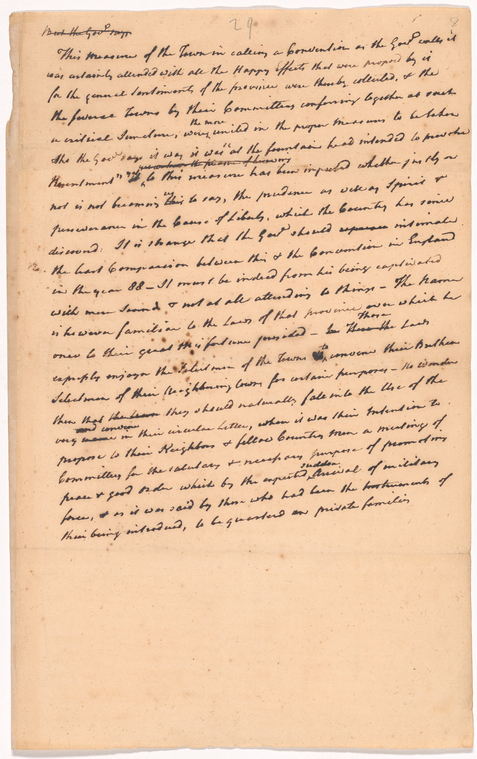 29
8
But the Gov.r says
This Measure of the Town in calling a Convention as the Gov.r calls it
was certainly attended with all the Happy Effects that were proposd by it
for the general Sentiments of the province were thereby collected, & the
the several Towns by their Committees conferring together at such
a critical Juncture, were the more united in the proper Measures to be taken
Tho the Gov.r says it was "at the fountain head intended to provoke
Resentment" to this measure has been imputed whether justly or
not is not becoming us to say, the prudence as well as Spirit &
perseverance in the Cause of Liberty, which the Country has since
discoverd. It is strange that the Gov.r should intimate
the least Comparison between this & the Convention in England
in the year 88 – It must be indeed from his being captivated
with mere Sound & not at all attending to things – The Name
is however familiar to the Laws of that province over which he
once to their great Misfortune presided – Those Laws
expressly enjoyn the Selectmen of the Towns to convene their Brethren
Selectmen of their Neighbouring Towns for certain purposes – No Wonder
then that they should naturally fall into the Use of the
very in their circular Letter, when it was their Intention to
propose to their Neighbors & fellow Country men a meeting of
Committees for the salutary & necessary purpose of promoting
peace & good order which by the expected sudden Arrival of military
force, & as it was said by those who had been the Instruments of
their being introduced, to be quartered in private families